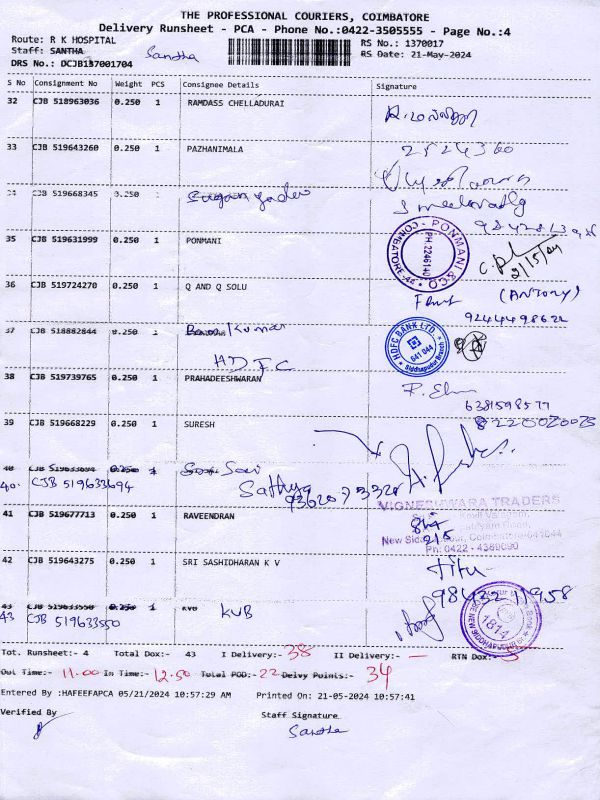 THE PROFESSIONAL COURIERS, COIMBATORE
Delivery Runsheet - PCA - Phone No.:0422-3505555 - Page No.:4
Route: R K HOSPITAL
RS No.: 1370017
Staff: SANTHA Santha
RS Date: 21-May-2024
DRS No.: DCJB137001704
S No Consignment No Weight PCS Consignee Details Signature
32 CJB 518963036 0.250 1 RAMDASS CHELLADURAI
33 CJB 519643260 0.250 1 PAZHANIMALA
2524360
34 CJB 519668345 0.250 1
35 CJB 519631999 0.250 1 PONMANI
PONMANI & CO COIMBATORE-44 PH:2246140
36 CJB 519724270 0.250 1 Q AND Q SOLU
(ANTONY)
9244498622
37 CJB 518882844 0.250 1 Kumar
HDFC
HDFC BANK LTD. 641 044 Siddhapudur Branch
38 CJB 519739765 0.250 1 PRAHADEESHWARAN
6381598577
39 CJB 519668229 0.250 1 SURESH
8220020025
40 CJB 519633694 0.250 1
40. CJB 519633694 Sathya
9362073328
VIGNESHWARA TRADERS
41 CJB 519677713 0.250 1 RAVEENDRAN
New Sidhapudur, Coimbatore-641044
Ph: 0422 - 4389090
42 CJB 519643275 0.250 1 SRI SASHIDHARAN K V
Titu
9843211958
43 CJB 519633550 0.250 1 KVB KVB
43 CJB 519633550
1814
Tot. Runsheet:- 4 Total Dox:- 43 I Delivery:- 38 II Delivery:- — RTN Dox:- 5
Out Time:- 11.00 In Time:- 12.50 Total POD:- 22 Delvy Points:- 34
Entered By :HAFEEFAPCA 05/21/2024 10:57:29 AM Printed On: 21-05-2024 10:57:41
Verified By Staff Signature
Santha